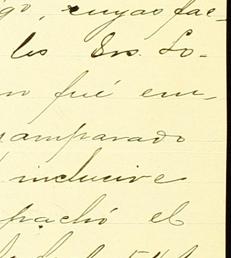 go, cuyas fac-
les Srs. Lo-
no fué em-
amparado
inclusive
pachó el